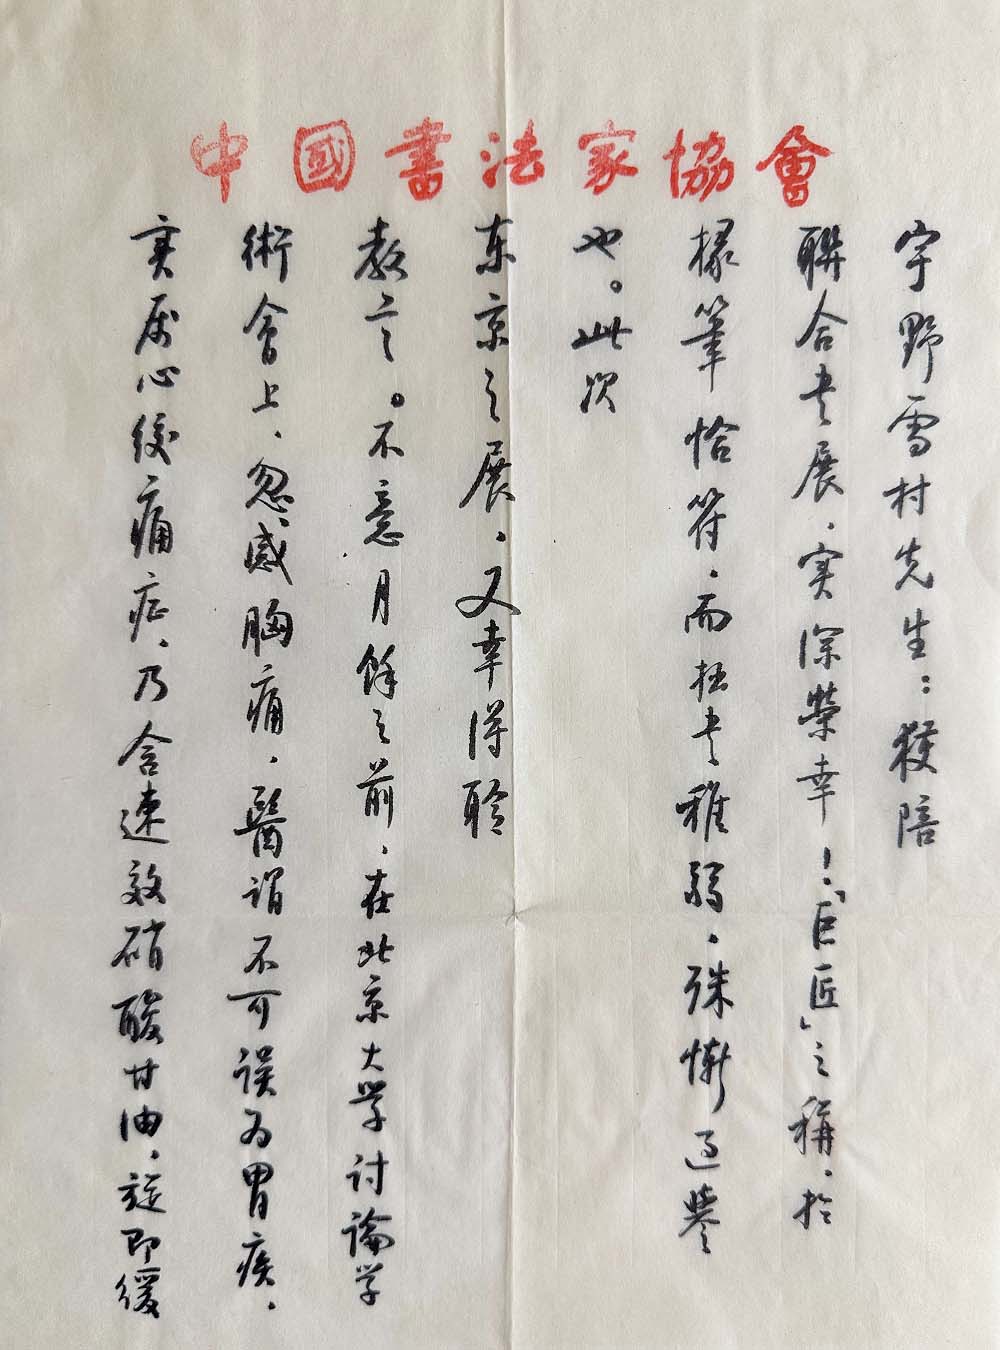 中國書法家協會
宇野雪村先生：獲陪
聯合书展，实深榮幸！「巨匠」之稱，於
椽筆恰符，而拙书稚弱，殊慚过譽
也。此次
东京之展，又幸得聆
教言。不意月餘之前，在北京大学討論学
術會上，忽感胸痛，醫謂不可误为胃疾，
实属心绞痛症，乃含速效硝酸甘油，旋即缓